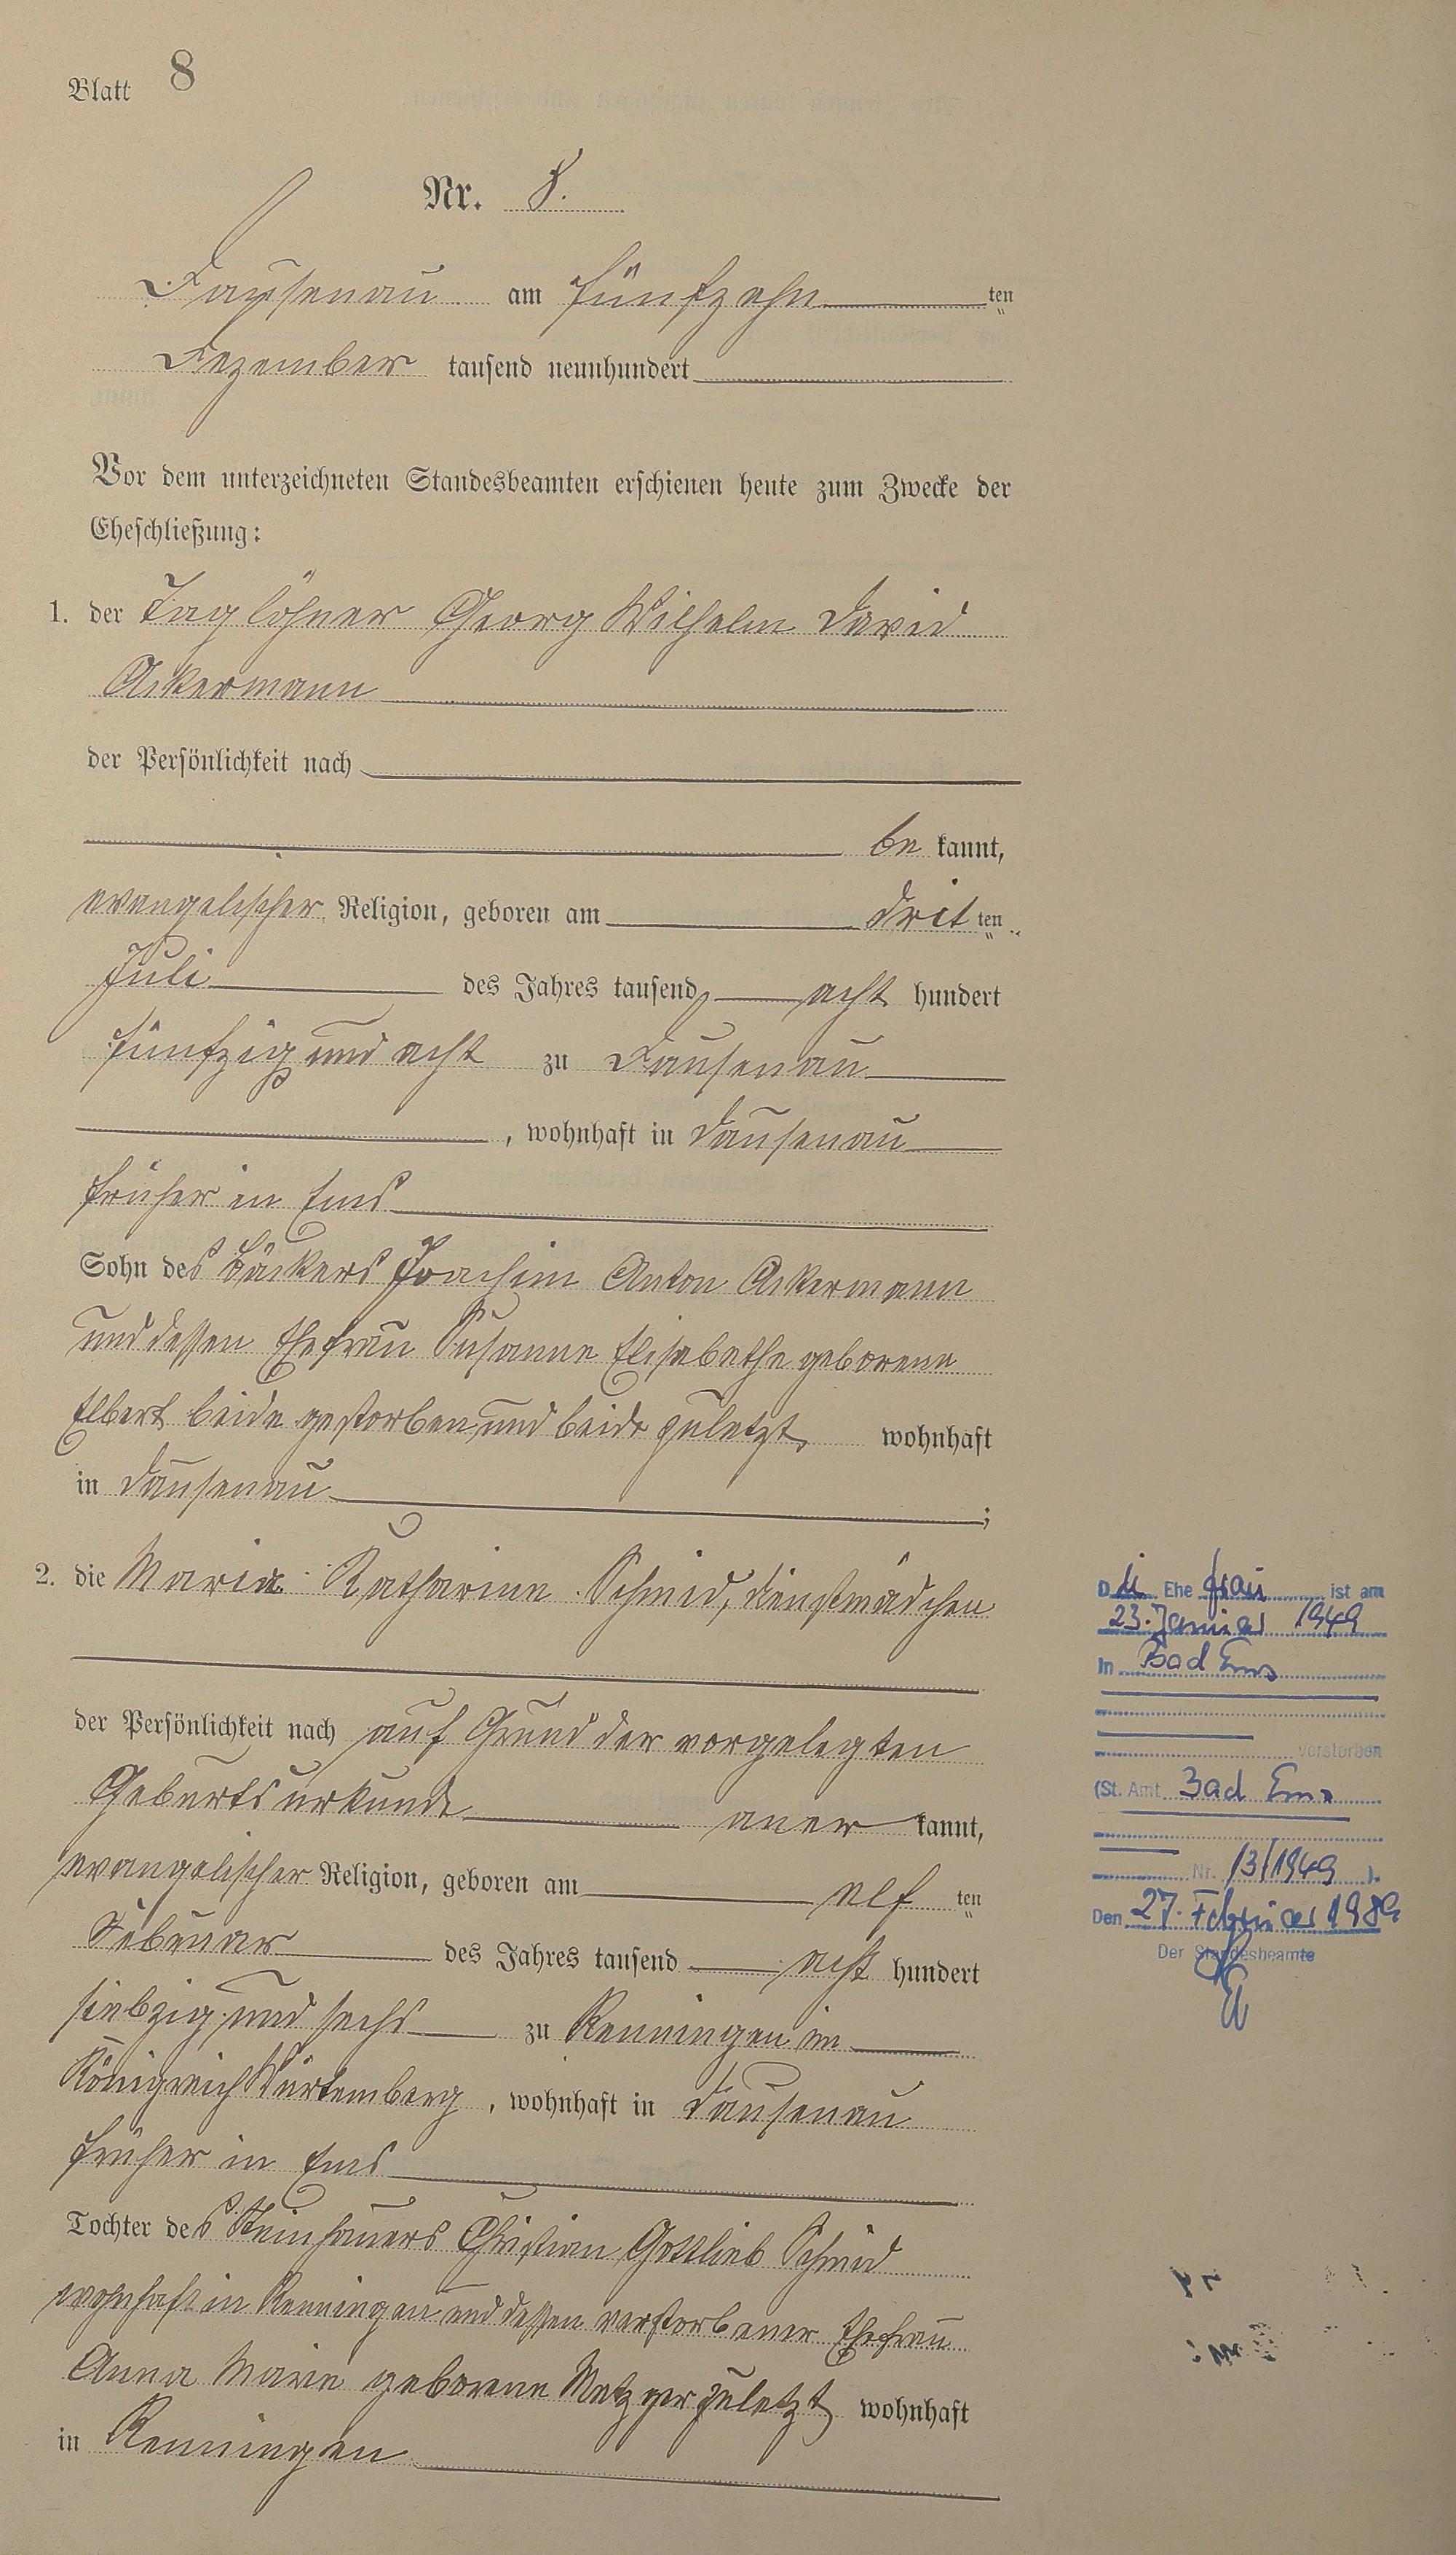 Blatt 8
Nr. 8.
Dausenau am fünfzehn ten
Dezember tausend neunhundert
Vor dem unterzeichneten Standesbeamten erschienen heute zum Zwecke der
Eheschließung:
1. der Taglöhner Georg Wilhelm David
Ackermann
der Persönlichkeit nach
be kannt,
evangelischer Religion, geboren am drit ten
Juli des Jahres tausend acht hundert
fünfzig und acht zu Dausenau
, wohnhaft in Dausenau
früher in Ems
Sohn des Bäckers Joachim Anton Ackermann
und dessen Ehefrau Susanne Elisabethe geborene
Elbert beide gestorben und beide zuletzt wohnhaft
in Dausenau ;
2. die Maria Katharine Schmid, Dienstmädchen
der Persönlichkeit nach auf Grund der vorgelegten
Geburtsurkunde aner kannt,
evangelischer Religion, geboren am elf ten
Februar des Jahres tausend acht hundert
siebzig und sechs zu Renningen im
Königreich Würtemberg , wohnhaft in Dausenau
früher in Ems
Tochter des Steinhauers Christian Gottlieb Schmid
wohnhaft in Renningen und dessen verstorbener Ehefrau
Anna Marie geborene Metzger zuletzt wohnhaft
in Renningen
Die Ehe frau ist am
23. Januar 1949
in Bad Ems
verstorben
(St. Amt Bad Ems
Nr. 13/1949 ).
Den 27. Februar 1989
Der Standesbeamte